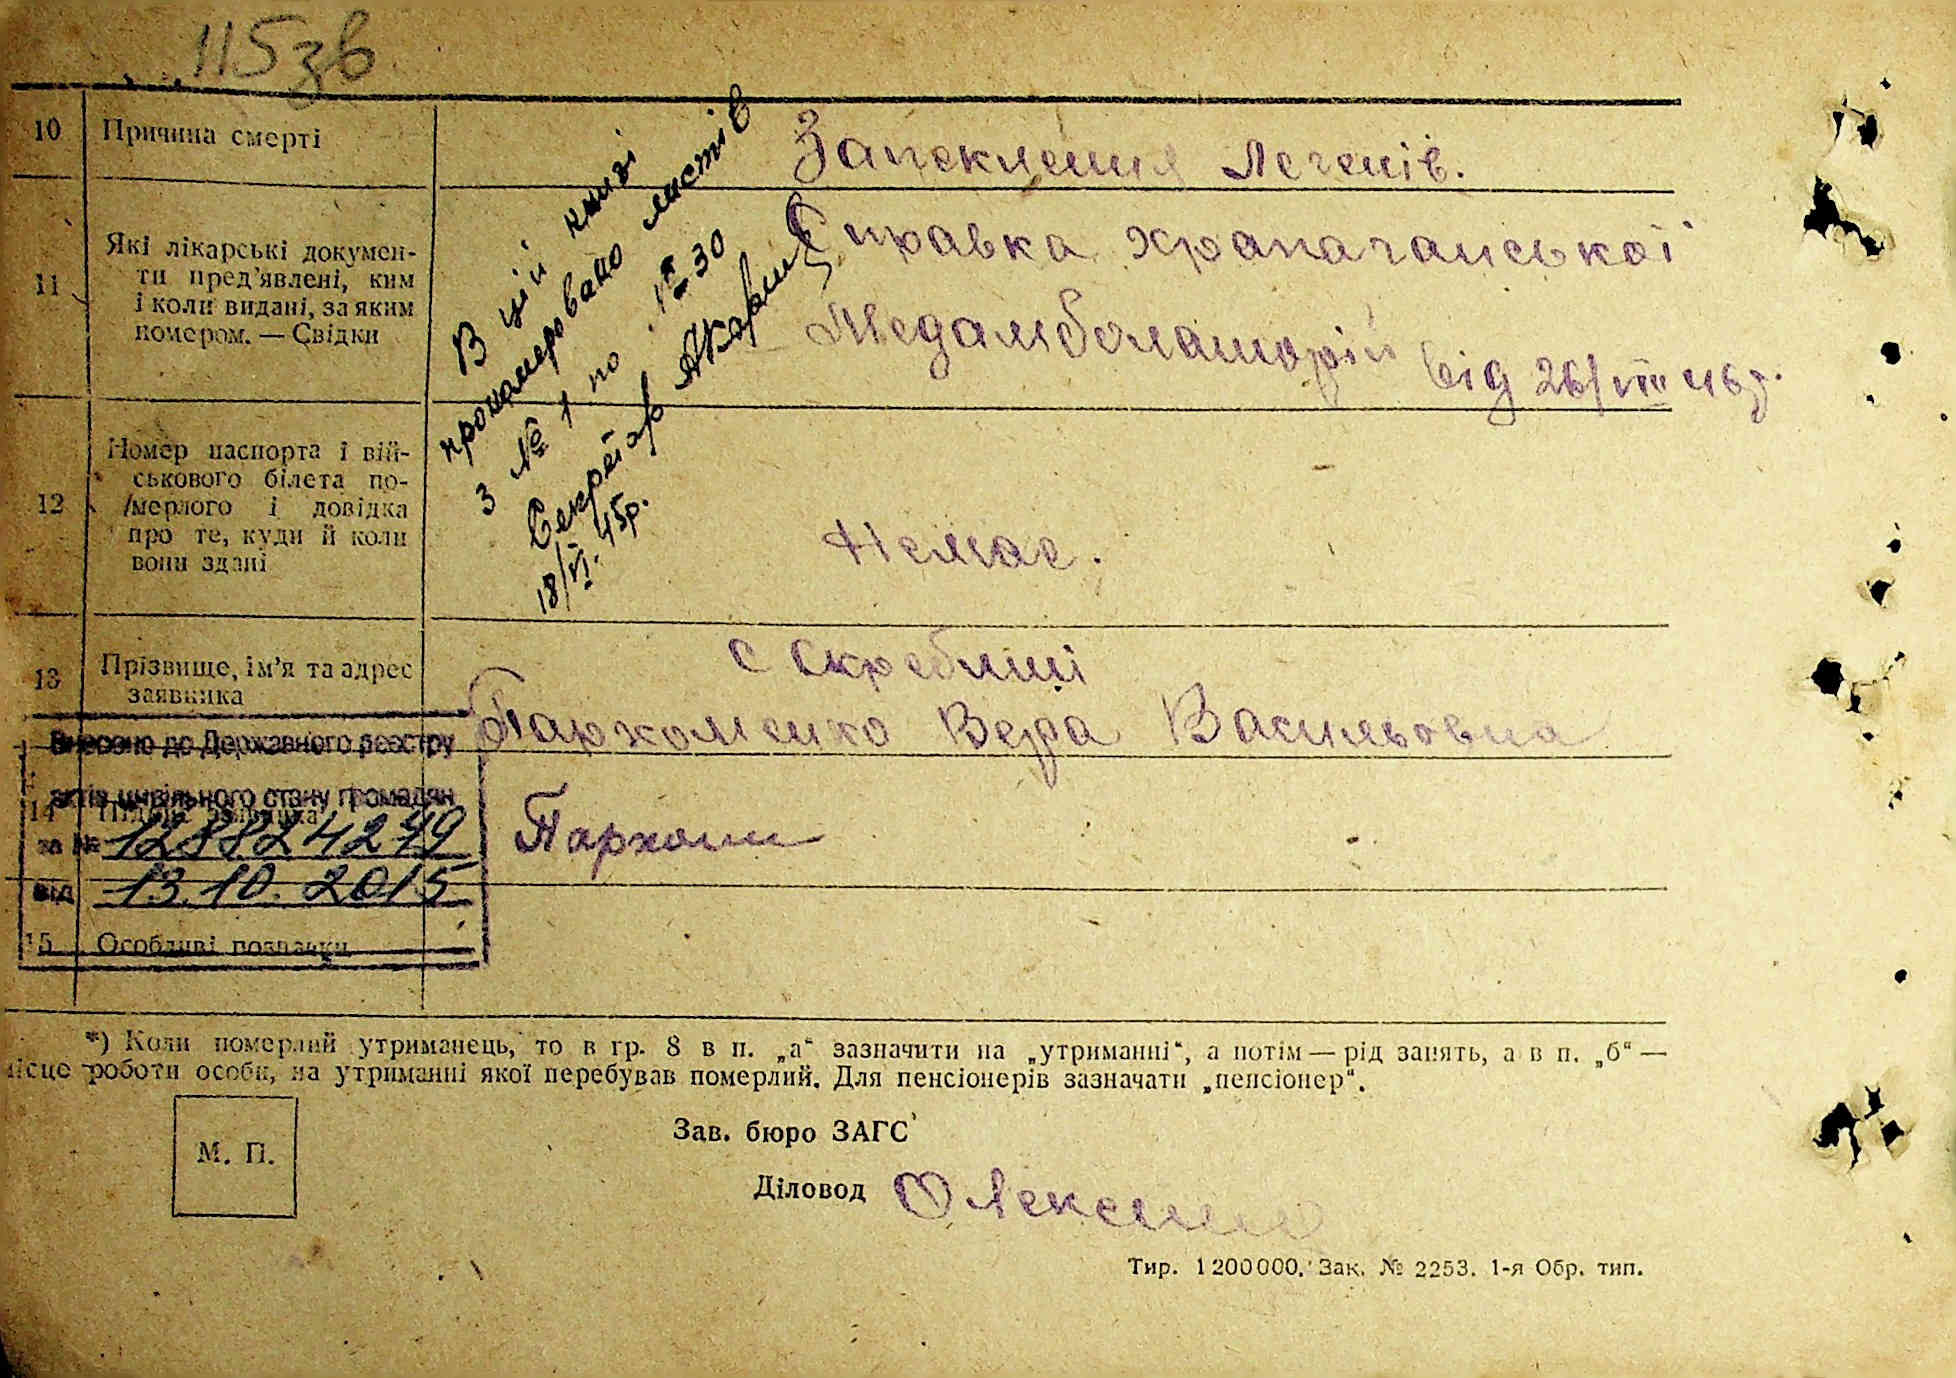 115зв
10 Причина смерті
Запекления легенів.
11 Які лікарські докумен-
ти пред'явлені, ким
і коли видані, за яким
номером. — Свідки
Справка храпачанської
Медамболаторій від 26/VIII 46р.
В цій книзі
прономеровано листів
з № 1 по № 30
Секретар
18/VI. 45р.
12 Номер паспорта і вій-
ськового білета по-
мерлого і довідка
про те, куди й коли
вони здані
Немає.
13 Прізвище, ім'я та адрес
заявника
с Скребиші
Пархоменко Вера Васильовна
Внесено до Державного реєстру
актів цивільного стану громадян
за № 1288242479
від 13.10.2015
14 Підпис заявника
Пархом
15 Особливі позначки
*) Коли померлий утриманець, то в гр. 8 в п. „а“ зазначити на „утриманні“, а потім — рід занять, а в п. „б“ —
місце роботи особи, на утриманні якої перебував померлий. Для пенсіонерів зазначати „пенсіонер“.
М. П.
Зав. бюро ЗАГС
Діловод
Тир. 1200000. Зак. № 2253. 1-я Обр. тип.